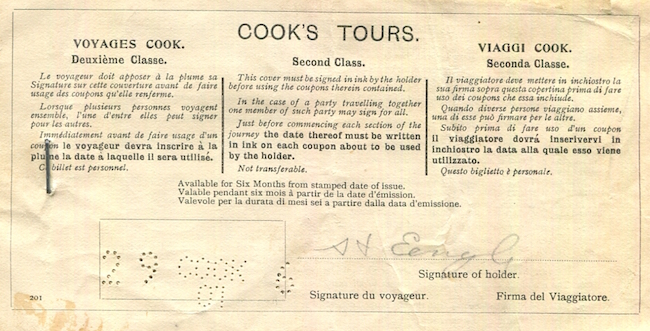 COOK'S TOURS.
VOYAGES COOK.
Deuxième Classe.
Le voyageur doit apposer à la plume sa
Signature sur cette couverture avant de faire
usage des coupons qu'elle renferme.
Lorsque plusieurs personnes voyagent
ensemble, l'une d'entre elles peut signer
pour les autres.
Immédiatement avant de faire usage d'un
coupon le voyageur devra inscrire à la
plume la date à laquelle il sera utilisé.
Ce billet est personnel.
Second Class.
This cover must be signed in ink by the holder
before using the coupons therein contained.
In the case of a party travelling together
one member of such party may sign for all.
Just before commencing each section of the
journey the date thereof must be written
in ink on each coupon about to be used
by the holder.
Not transferable.
VIAGGI COOK.
Seconda Classe.
Il viaggiatore deve mettere in inchiostro la
sua firma sopra questa copertina prima di far
uso dei coupons che essa inchiude.
Quando diverse persone viaggiano assieme,
una di esse può firmare per le altre.
Subito prima di fare uso d'un coupon
il viaggiatore dovrà inserivervi in
inchiostro la data alla quale esso viene
utilizzato.
Questo biglietto è personale.
Available for Six Months from stamped date of issue.
Valable pendant six mois à partir de la date d'émission.
Valevole per la durata di mesi sei a partire dalla data d'emissione.
COOK
Signature of holder.
Signature du voyageur.
Firma del Viaggiatore.
201